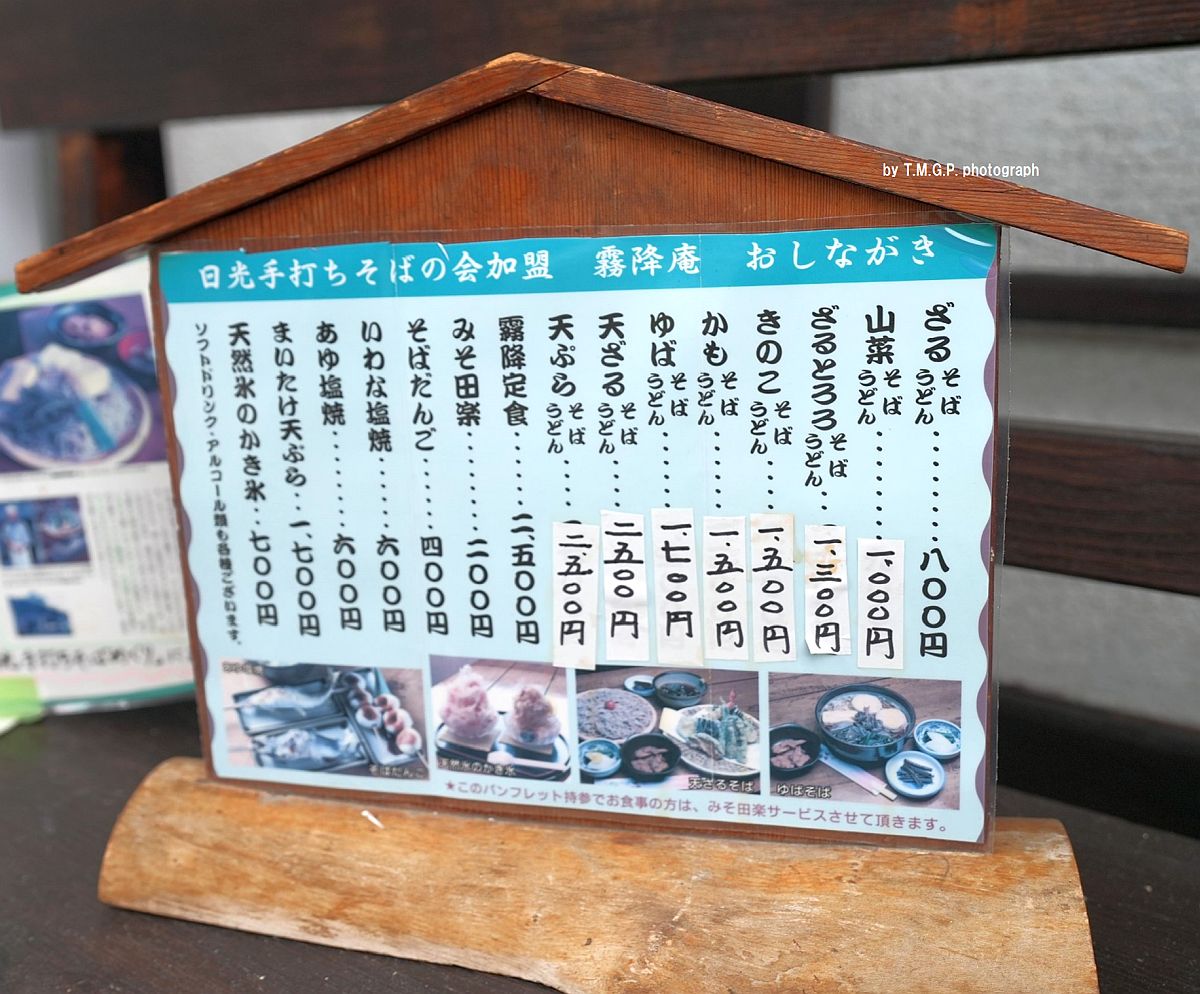 by T.M.G.P. photograph
日光手打ちそばの会加盟 霧降庵 おしながき
ざるそばうどん………八〇〇円
山菜そばうどん………一、〇〇〇円
ざるとろろそばうどん…一、三〇〇円
きのこそばうどん……一、五〇〇円
かもそばうどん………一、五〇〇円
ゆばそばうどん………一、七〇〇円
天ざるそばうどん……二、五〇〇円
天ぷらそばうどん……二、五〇〇円
霧降定食………二、五〇〇円
みそ田楽………二〇〇円
そばだんご………四〇〇円
いわな塩焼………六〇〇円
あゆ塩焼………六〇〇円
まいたけ天ぷら‥一、七〇〇円
天然氷のかき氷‥七〇〇円
ソフトドリンク・アルコール類も各種ございます。
そばだんご
天然氷のかき氷
天ざるそば
ゆばそば
★このパンフレット持参でお食事の方は、みそ田楽サービスさせて頂きます。